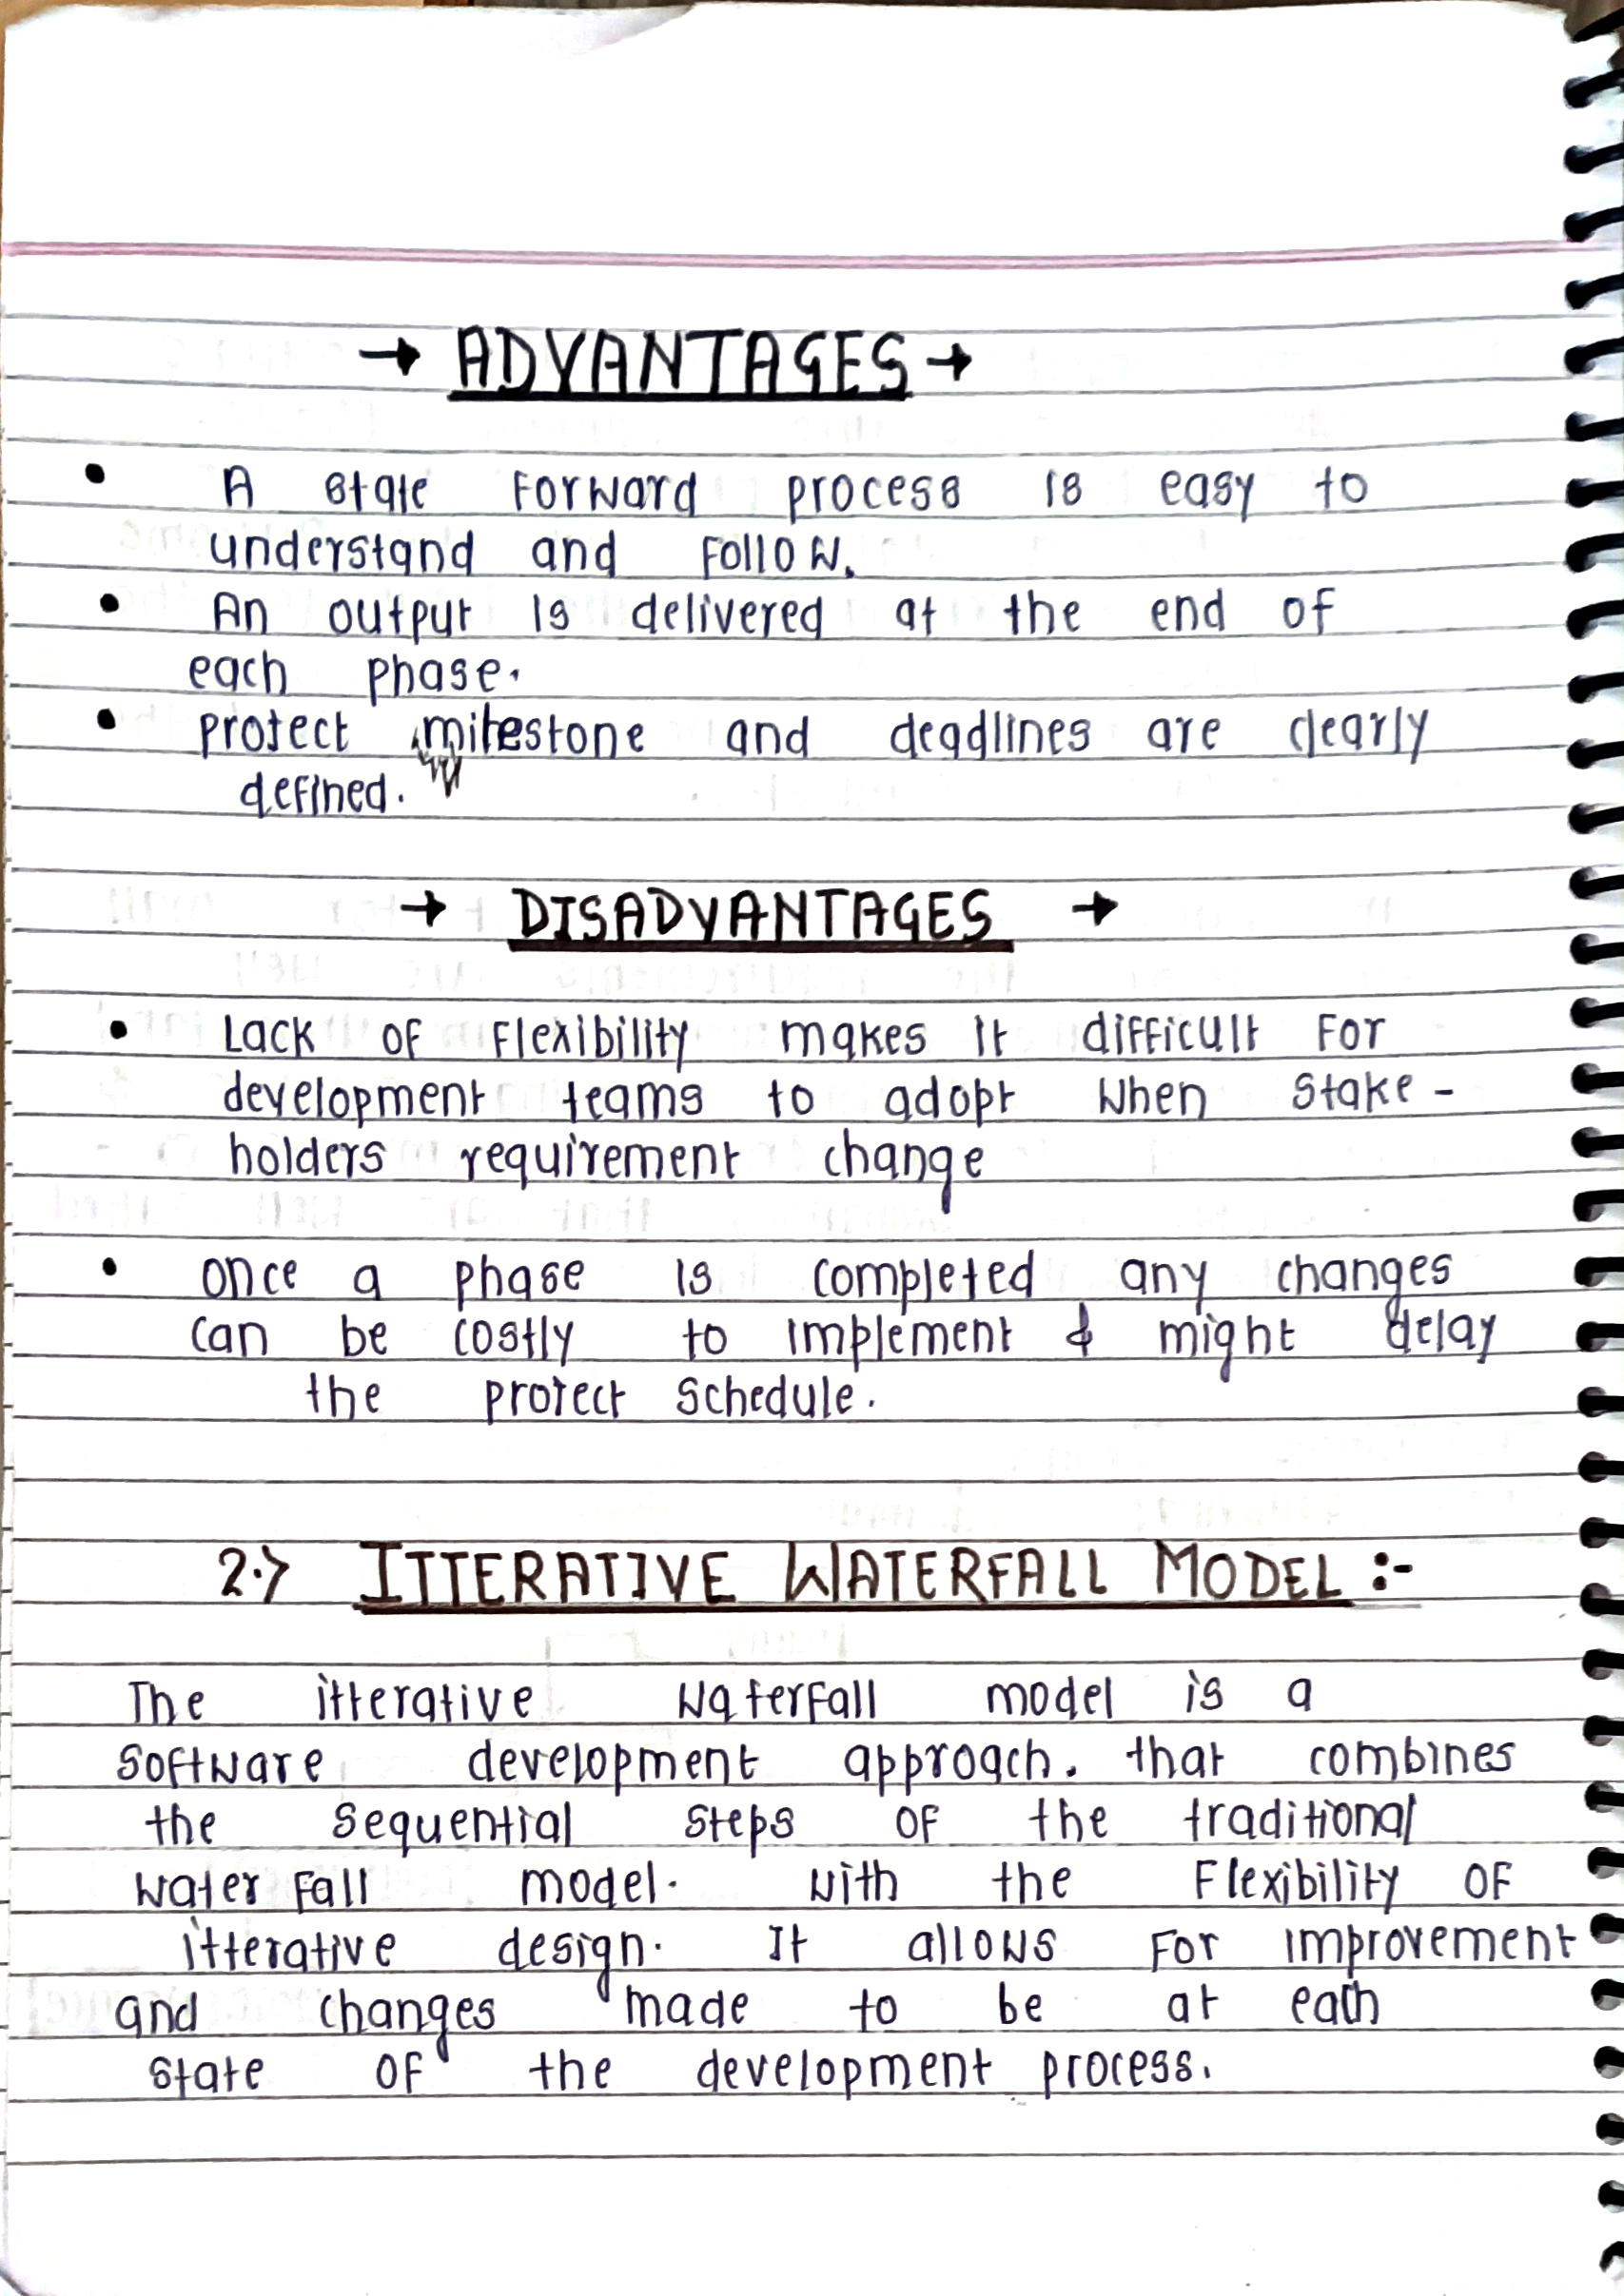 → ADVANTAGES →
• A state forward process is easy to
understand and follow.
• An output is delivered at the end of
each phase.
• project milestone and deadlines are clearly
defined.
→ DISADVANTAGES →
• Lack of flexibility makes it difficult for
development teams to adopt when stake-
holders requirement change
• once a phase is completed any changes
can be costly to implement & might delay
the project schedule.
2.> ITTERATIVE WATERFALL MODEL :-
The itterative waterfall model is a
software development approach. that combines
the sequential steps of the traditional
water fall model. with the flexibility of
itterative design. It allows for improvement
and changes made to be at each
state of the development process.